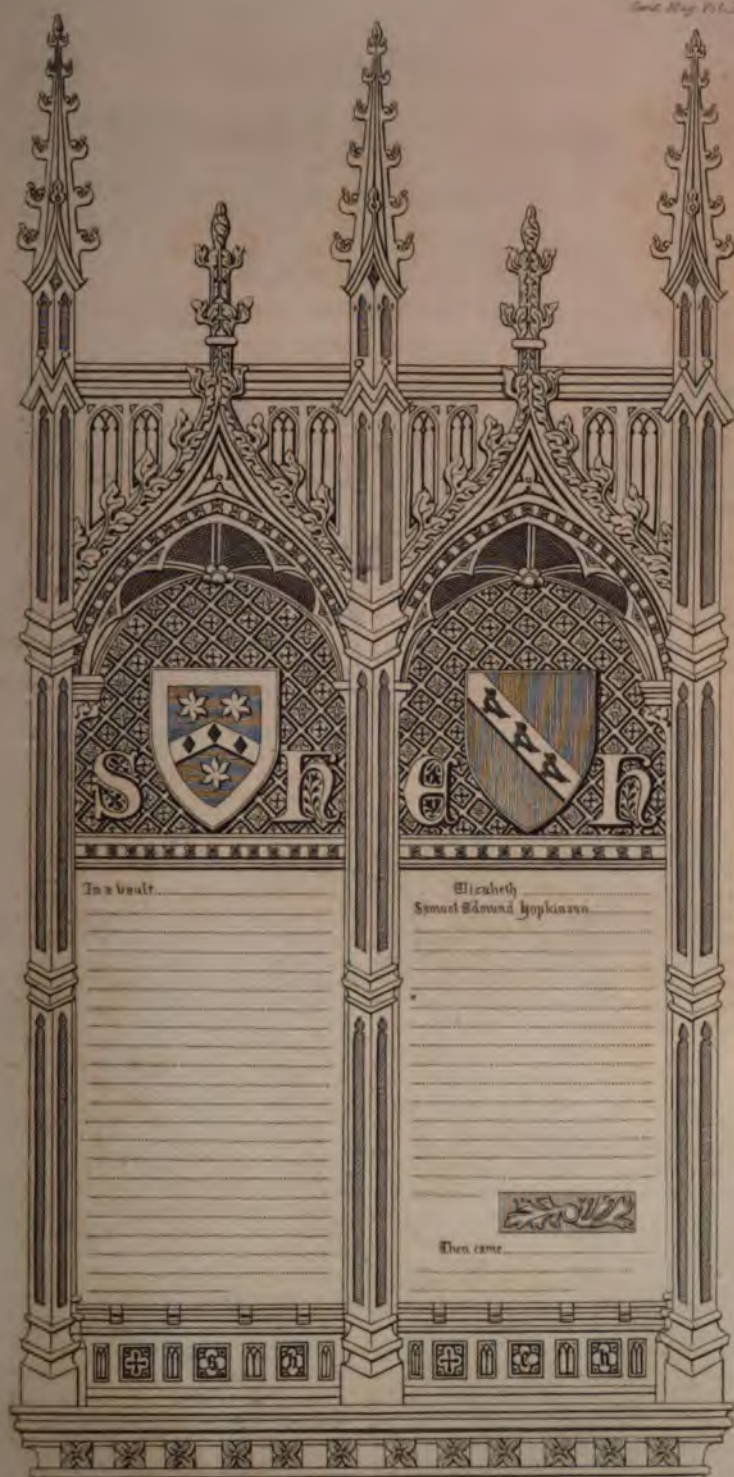 Gent. Mag. Vol.
S H E H
In a vault
Elizabeth
Samuel Edmund Hopkinson
Then came
S H E H